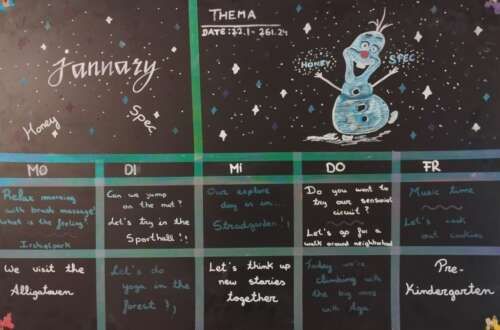 Jannary
Honey
Spec
THEMA
DATE: 22.1 - 261.24
HONEY
SPEC
MO
DI
Mi
DO
FR
Relax morning
with brush massage
what is the feeling?
Can we jump
on the mat?
Let's try in the
Sporthall!!
Our explore
day is in...
Stradgarden!!
Do you want to
try our sensorial
circuit?
Let's go for a
walk around neighborhood
Music time
Let's cook
out cookies
We visit the
Alligatoven
Let's do
yoga in the
forest?!
Let's think up
new stories
together
Today we're
climbing with
the big ones
with Aga
Pre-
Kindergarten